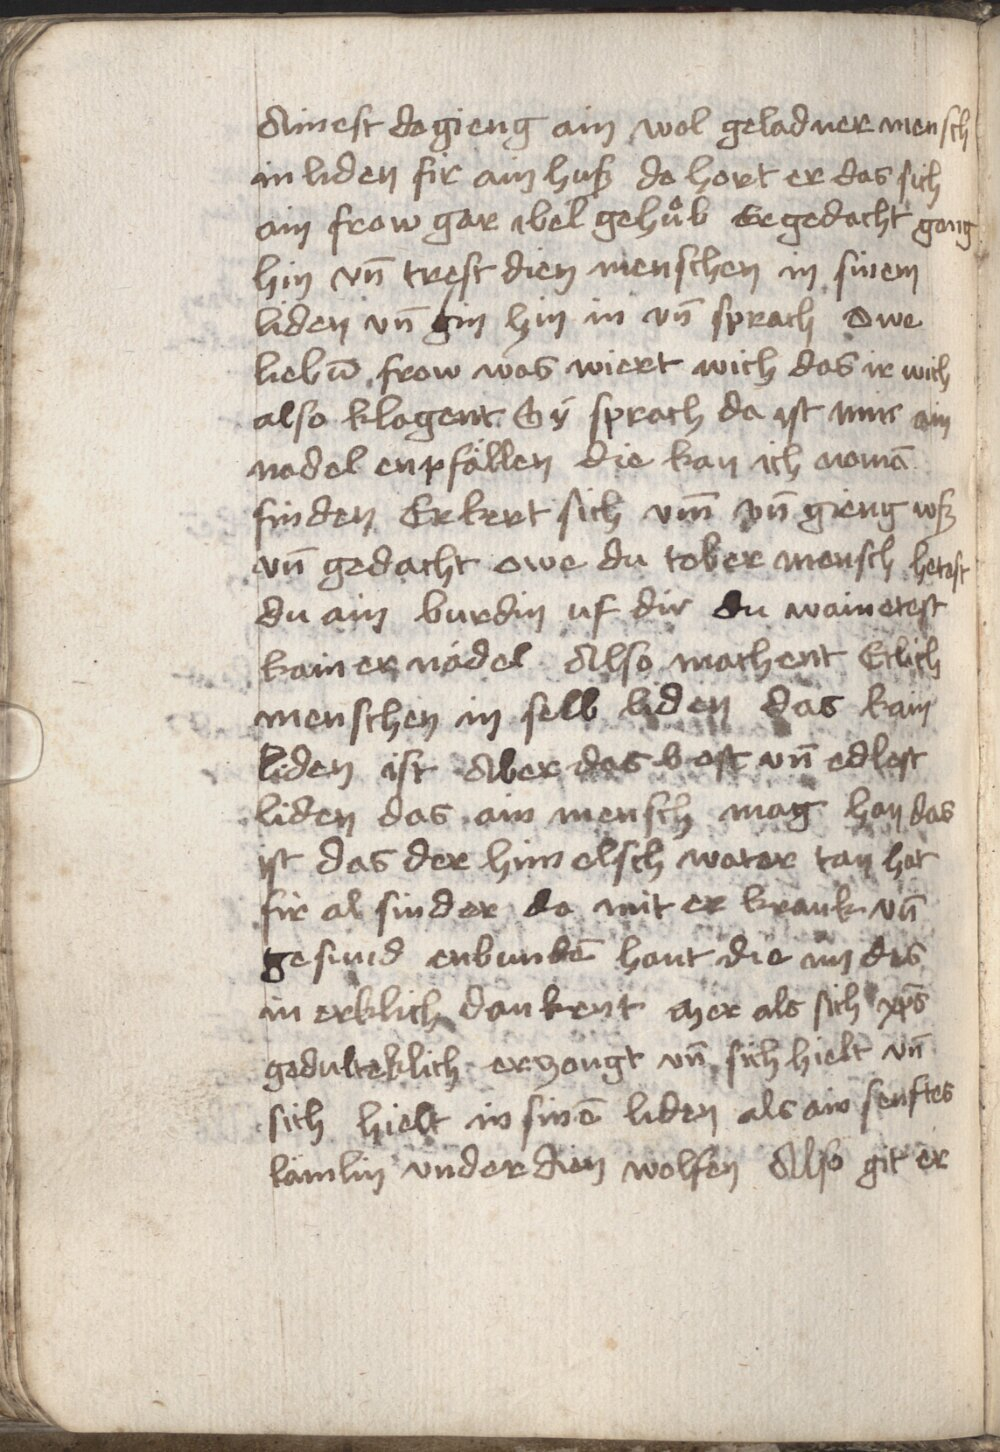 Ainest da gieng ain wol geladner mensch
in liden fir ain huß da hort er das sich
ain frow gar ibel gehuͦb Er gedacht gang
hin vn̄ trest dien menschen in sinem
liden vn̄ gin hin in vn̄ sprach Owe
liebu̅ frow was wiert wich das ir wich
also klagent Sÿ sprach da ist mir ain
nadel enpfällen die kan ich nomē
finden Er kert sich vm̄ vn̄ gieng uß
vn̄ gedacht owe du tober mensch hetest
du ain burdin uf dir du wainetest
kainer nädel Also machent Etlich
menschen in selb liden das kain
liden ist Aber das best vn̄ edlest
liden das ain mensch mag han das
ist das der himelsch water tan hat
fir al sinder da mit er krank vn̄
gesund enbundē hant die im des
inerklich dankent Mer als sich xp̄s
gedulteklich erzougt vn̄ sich hielt vn̄
sich hielt in sinē liden als ain senftes
lämlin vnder dien wolfen Also git er